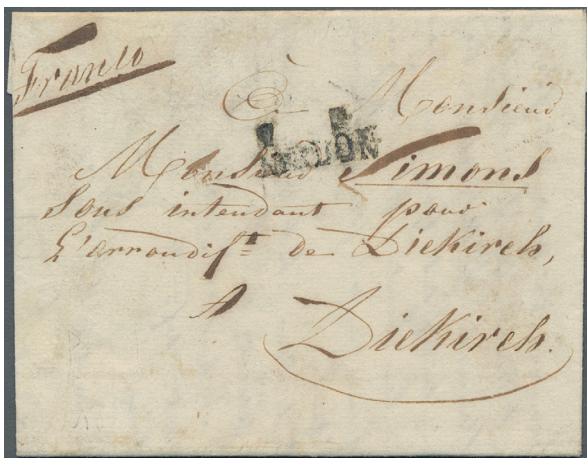 Franco
à Monsieur
P. P.
ARLON
Monsieur Simons
Sous intendant pour
L'arrondisst de Diekirch,
A
Diekirch.